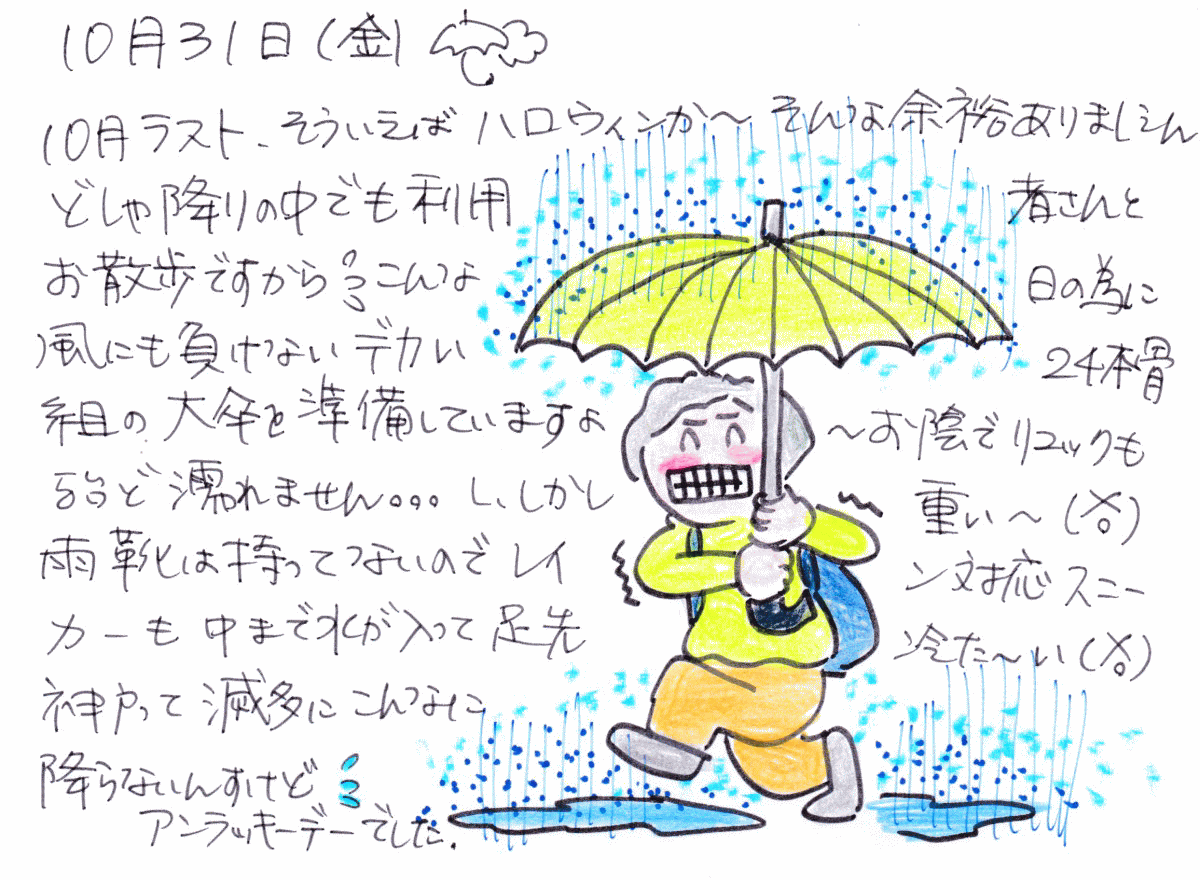 10月31日(金)
10月ラスト、そういえばハロウィンか〜そんな余裕ありません
どしゃ降りの中でも利用者さんと
お散歩ですからこんな日の為に
風にも負けないデカい24本骨
組の大傘を準備していますよ〜お陰でリュックも
ほど濡れません。。。し、しかし重い〜(×o)
雨靴は持ってないのでレイン対応スニー
カーも中まで水が入って足先冷た〜い(×o)
神戸って滅多にこんなに
降らないんすけど
アンラッキーデーでした.